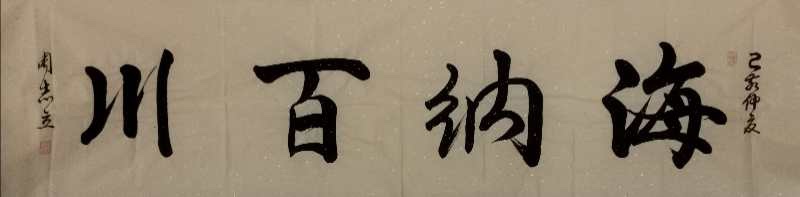 己亥仲夏
海纳百川
周志立